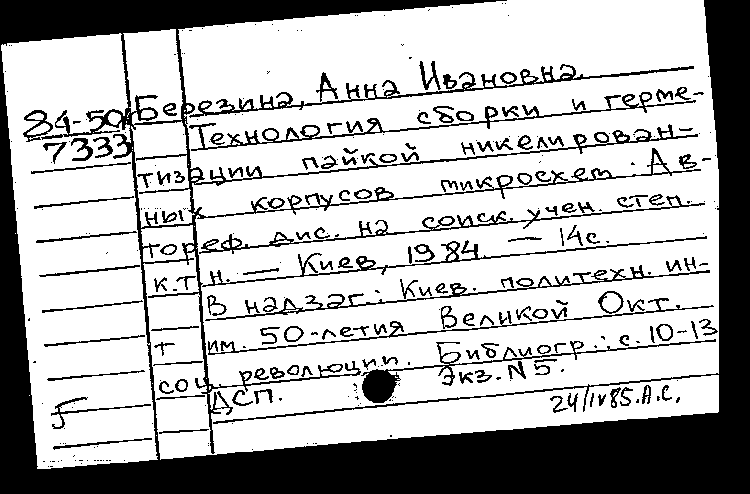 Березина, Анна Ивановна.
84-50/
7333
Технология сборки и герме-
тизации пайкой никелирован-
ных корпусов микросхем: Ав-
тореф. дис. на соиск. учен. степ.
к.т.н. — Киев, 1984. — 14с.
В надзаг.: Киев. политехн. ин-
т им. 50-летия Великой Окт.
соц. революции. Библиогр.: с. 10-13
ДСП. Экз. N 5.
24/IV85. А.С.